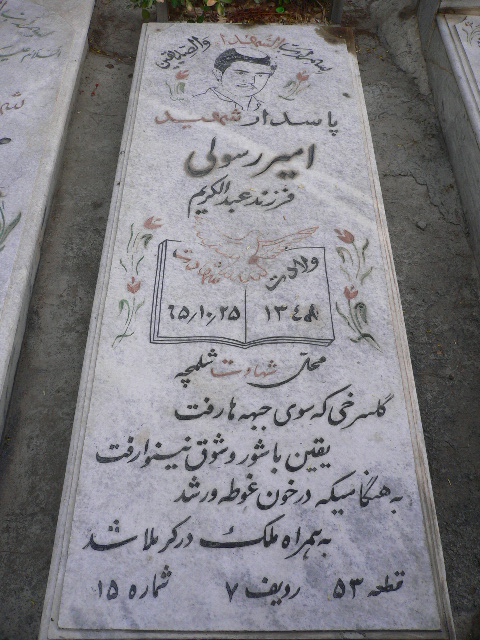 بسم رب الشهداء والصدیقین
پاسدار شهید
امیر رسولی
فرزند عبدالکریم
ولادت شهادت
۱۳۴۸ ۶۵/۱۰/۲۵
محل شهادت شلمچه
گلسرخی که سوی جبهه ها رفت
یقین با شور و شوق نینوا رفت
به هنگامیکه در خون غوطه ور شد
به همراه ملک در کربلا شد
قطعه ۵۳ ردیف ۷ شماره ۱۵